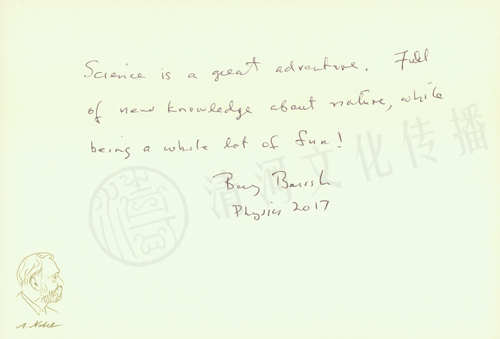 Science is a great adventure. Full
of new knowledge about nature, while
being a whole lot of fun!
Barry Barish
Physics 2017
清河文化传播
A. Nobel